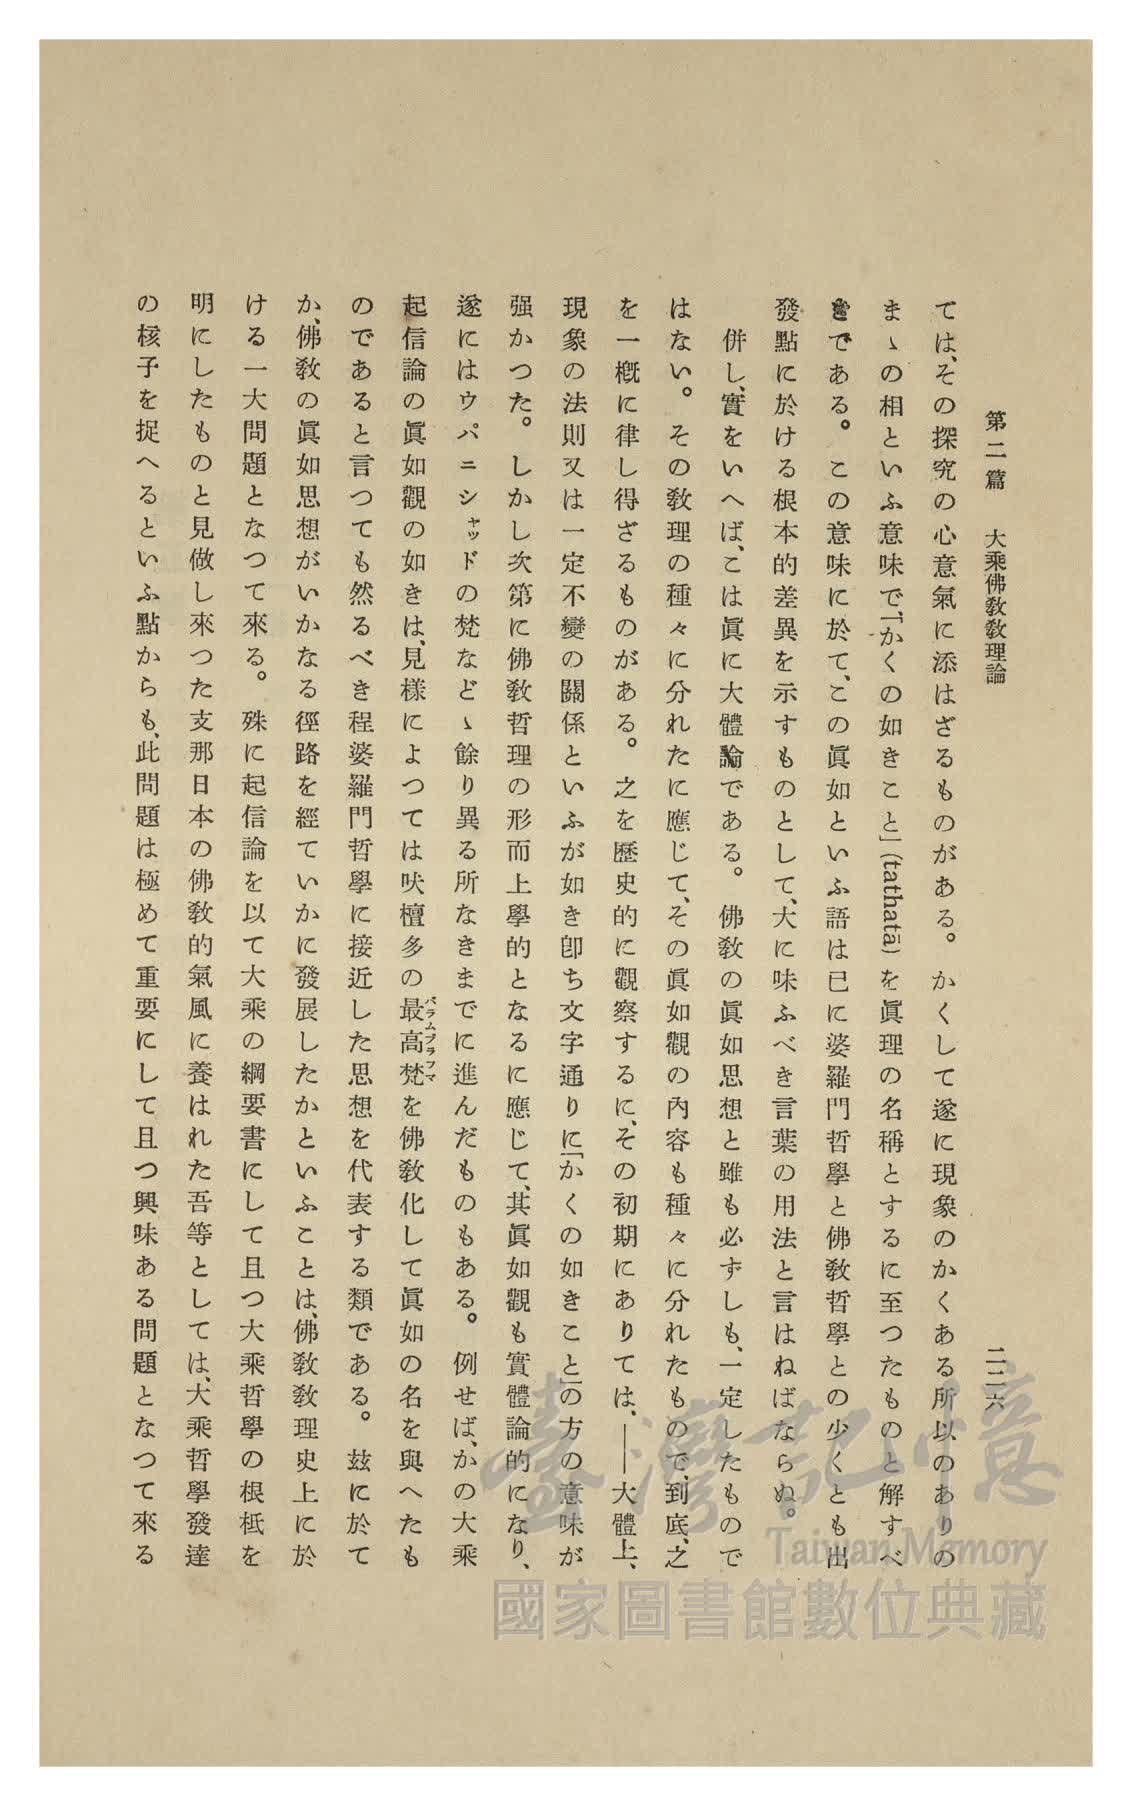 第二篇　大乘佛敎敎理論　二二六
ては、その探究の心意氣に添はざるものがある。かくして遂に現象のかくある所以のありの
まゝの相といふ意味で、「かくの如きこと」(tathatā)を眞理の名稱とするに至つたものと解すべ
きである。この意味に於て、この眞如といふ語は已に婆羅門哲學と佛敎哲學との少くとも出
發點に於ける根本的差異を示すものとして、大に味ふべき言葉の用法と言はねばならぬ。
併し、實をいへば、こは眞に大體論である。佛敎の眞如思想と雖も必ずしも、一定したもので
はない。その敎理の種々に分れたに應じて、その眞如觀の內容も種々に分れたもので、到底、之
を一槪に律し得ざるものがある。之を歷史的に觀察するに、その初期にありては、――大體上、
現象の法則又は一定不變の關係といふが如き卽ち文字通りに「かくの如きこと」の方の意味が
强かつた。しかし次第に佛敎哲理の形而上學的となるに應じて、其眞如觀も實體論的になり、
遂にはウパニシャッドの梵などゝ餘り異る所なきまでに進んだものもある。例せば、かの大乘
起信論の眞如觀の如きは、見樣によつては吠檀多の最高梵パラムブラフマを佛敎化して眞如の名を與へたも
のであると言つても然るべき程婆羅門哲學に接近した思想を代表する類である。玆に於て
か、佛敎の眞如思想がいかなる徑路を經ていかに發展したかといふことは、佛敎敎理史上に於
ける一大問題となつて來る。殊に起信論を以て大乘の綱要書にして且つ大乘哲學の根柢を
明にしたものと見做し來つた支那日本の佛敎的氣風に養はれた吾等としては、大乘哲學發達
の核子を捉へるといふ點からも、此問題は極めて重要にして且つ興味ある問題となつて來る
臺灣記憶
Taiwan Memory
國家圖書館數位典藏